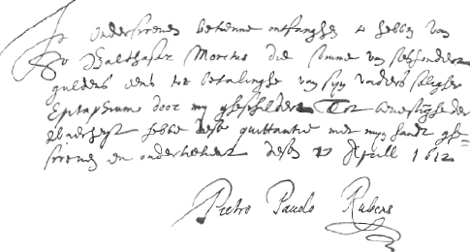 Ic onderscreven bekenne ontfanghen te hebben van
Sr Balthasar Moretus die somme van seshondert
guldens eens tot betalinghe van syn vaders saligher
Epitaphium door my gheschildert Tot bevestinghe der
waerheyt hebbe dese quittantie met myn handt ghe=
screven en onderteekent desen 27 April 1612
Pietro Pauolo Rubens